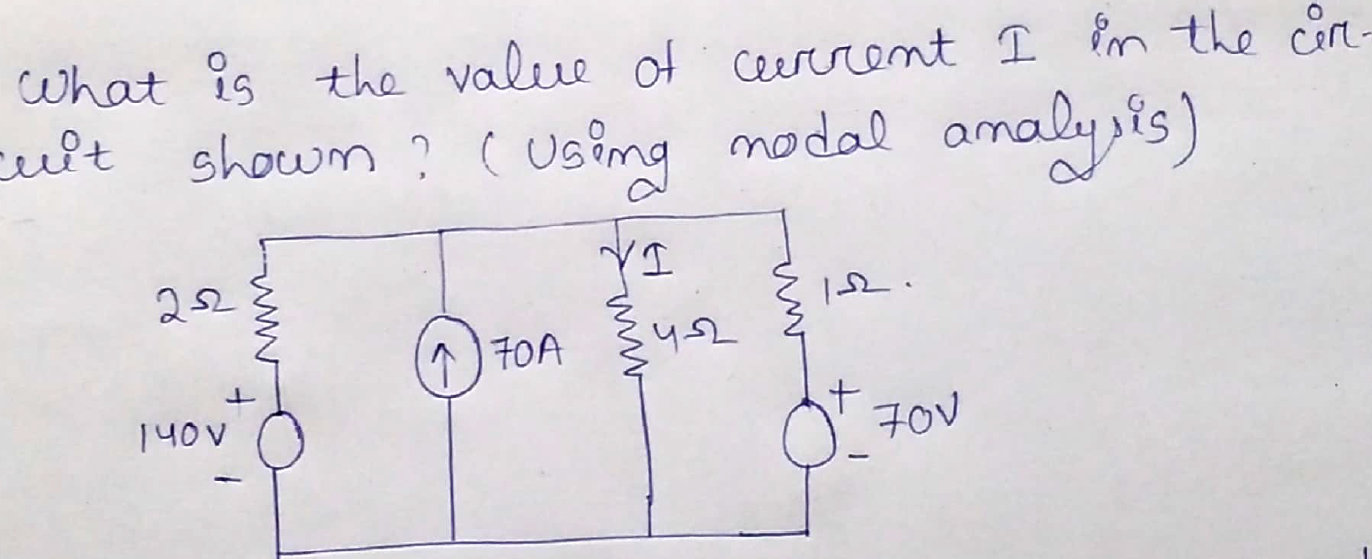 What is the value of current I in the cir-
cuit shown? (Using nodal analysis)
I
2Ω
1Ω.
70A
4Ω
+
+
140V
70V
-
-